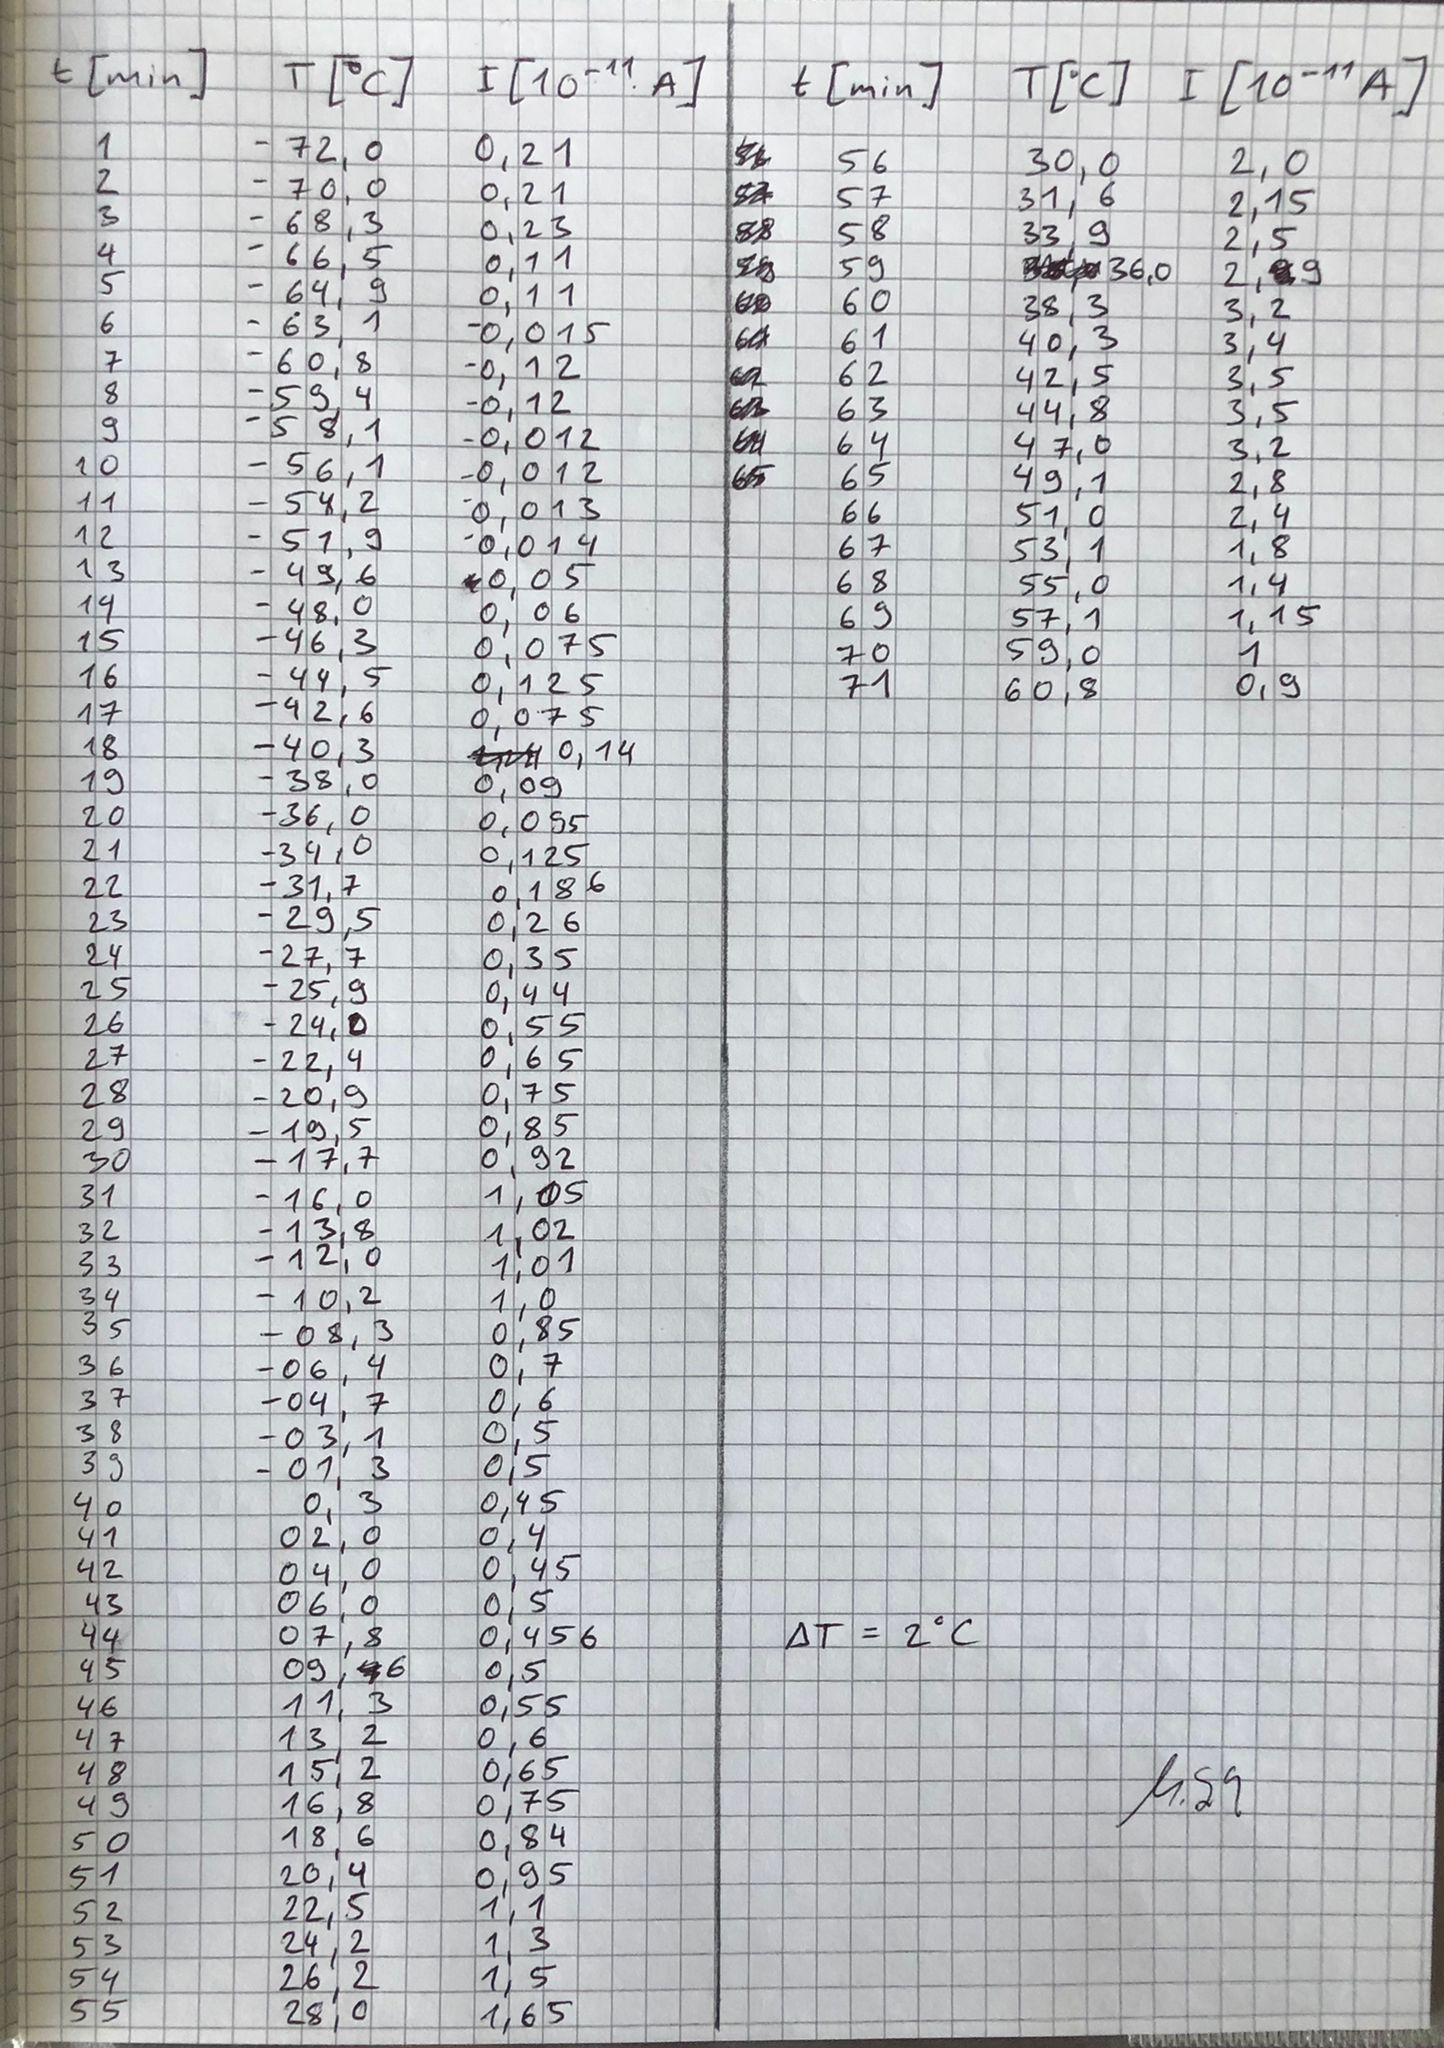 t [min] T [°C] I [10⁻¹¹ A]
1 -72,0 0,21
2 -70,0 0,21
3 -68,3 0,23
4 -66,5 0,11
5 -64,9 0,11
6 -63,1 -0,015
7 -60,8 -0,12
8 -59,4 -0,12
9 -58,1 -0,012
10 -56,1 -0,012
11 -54,2 -0,013
12 -51,9 -0,014
13 -49,6 0,05
14 -48,0 0,06
15 -46,3 0,075
16 -44,5 0,125
17 -42,6 0,075
18 -40,3 0,14
19 -38,0 0,09
20 -36,0 0,095
21 -34,0 0,125
22 -31,7 0,186
23 -29,5 0,26
24 -27,7 0,35
25 -25,9 0,44
26 -24,0 0,55
27 -22,4 0,65
28 -20,9 0,75
29 -19,5 0,85
30 -17,7 0,92
31 -16,0 1,05
32 -13,8 1,02
33 -12,0 1,01
34 -10,2 1,0
35 -08,3 0,85
36 -06,4 0,7
37 -04,7 0,6
38 -03,1 0,5
39 -01,3 0,5
40 0,3 0,45
41 02,0 0,4
42 04,0 0,45
43 06,0 0,5
44 07,8 0,456
45 09,6 0,5
46 11,3 0,55
47 13,2 0,6
48 15,2 0,65
49 16,8 0,75
50 18,6 0,84
51 20,4 0,95
52 22,5 1,1
53 24,2 1,3
54 26,2 1,5
55 28,0 1,65
t [min] T [°C] I [10⁻¹¹ A]
56 30,0 2,0
57 31,6 2,15
58 33,9 2,5
59 36,0 2,9
60 38,3 3,2
61 40,3 3,4
62 42,5 3,5
63 44,8 3,5
64 47,0 3,2
65 49,1 2,8
66 51,0 2,4
67 53,1 1,8
68 55,0 1,4
69 57,1 1,15
70 59,0 1
71 60,8 0,9
ΔT = 2°C